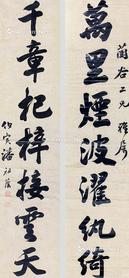 蘭谷二兄雅屬
萬里煙波濯紈綺
千章杞梓接雲天
伯寅潘祖蔭